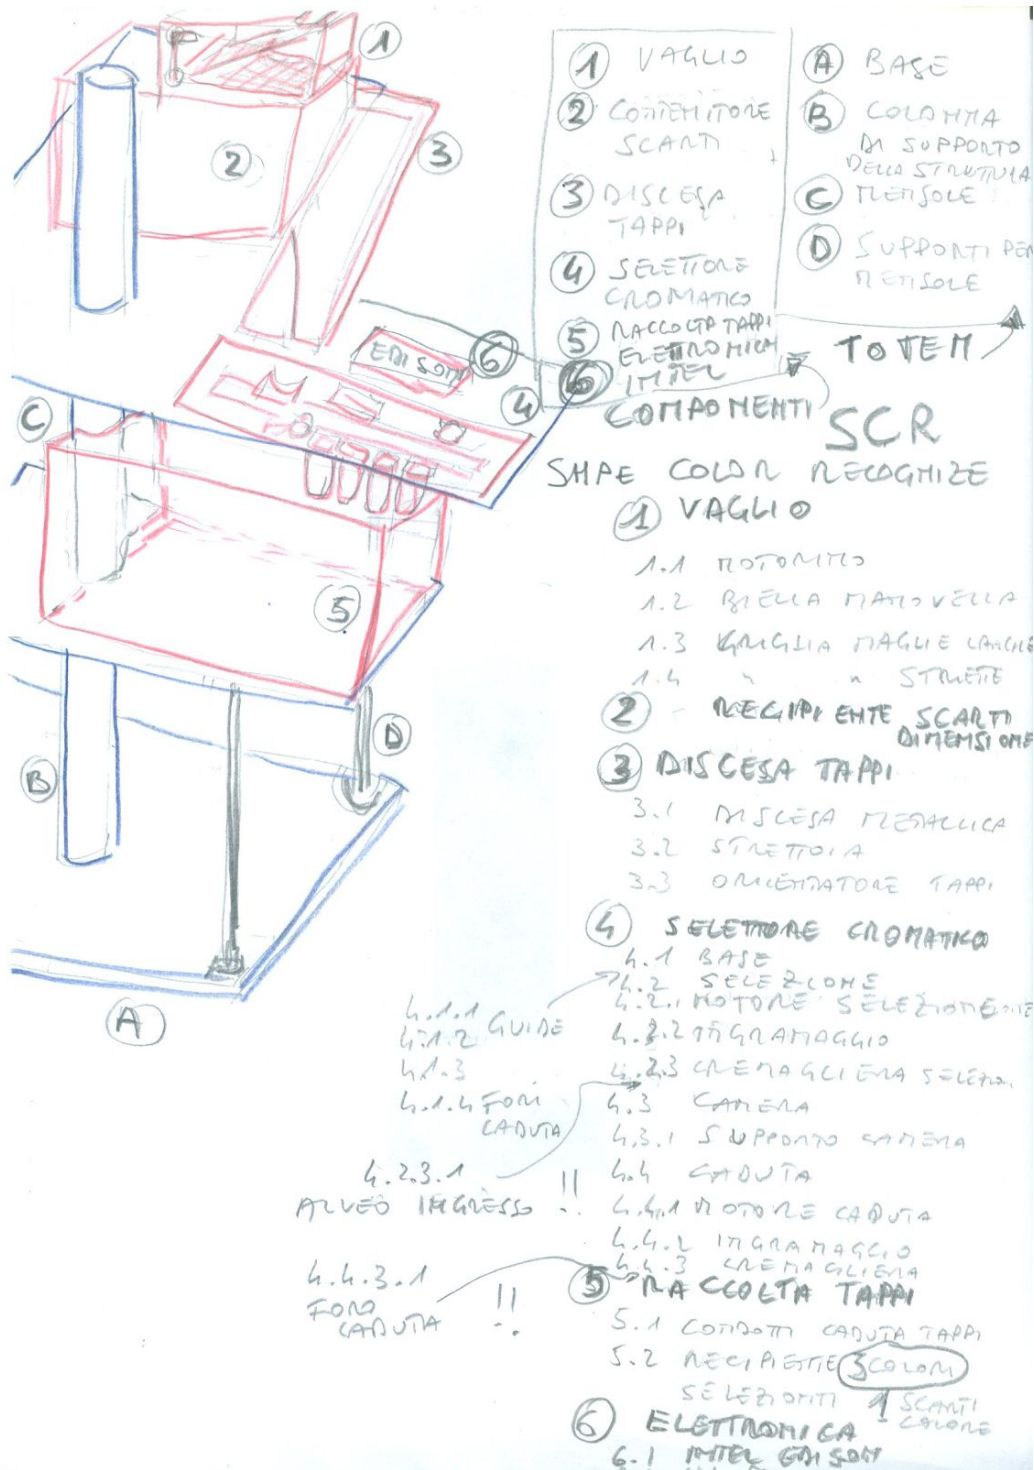 1
2
3
EDISON
6
4
C
5
D
B
A
1 VAGLIO
2 CONTENITORE
SCARTI
3 DISCESA
TAPPI
4 SELETTORE
CROMATICO
5 RACCOLTA TAPPI
6 ELETTRONICA
INTEL
COMPONENTI
A BASE
B COLONNA
DI SUPPORTO
DELLA STRUTTURA
C MENSOLE
D SUPPORTI PER
MENSOLE
TOTEM
SCR
SHPE COLOR RECOGNIZE
1 VAGLIO
1.1 MOTORINO
1.2 BIELLA MANOVELLA
1.3 GRIGLIA MAGLIE LARGHE
1.4 " " STRETTE
2 - RECIPIENTE SCARTI
DIMENSIONE
3 DISCESA TAPPI
3.1 DISCESA METALLICA
3.2 STRETTOIA
3.3 ORIENTATORE TAPPI
4 SELETTORE CROMATICO
4.1 BASE
4.1.1
4.1.2 GUIDE
4.1.3
4.1.4 FORI
CADUTA
4.2 SELEZIONE
4.2.1 MOTORE SELEZIONE
4.2.2 INGRANAGGIO
4.2.3 CREMAGLIERA SELEZION
4.2.3.1
ALVEO INGRESSO !!
4.3 CAMERA
4.3.1 SUPPORTO CAMERA
4.4 CADUTA
4.4.1 MOTORE CADUTA
4.4.2 INGRANAGGIO
4.4.3 CREMAGLIERA
4.4.3.1
FORO
CADUTA !!
5 RACCOLTA TAPPI
5.1 CONDOTTI CADUTA TAPPI
5.2 RECIPIENTE 3 COLORI
SELEZIONTI 1 SCARTI
COLORE
6 ELETTRONICA
6.1 INTEL EDISON